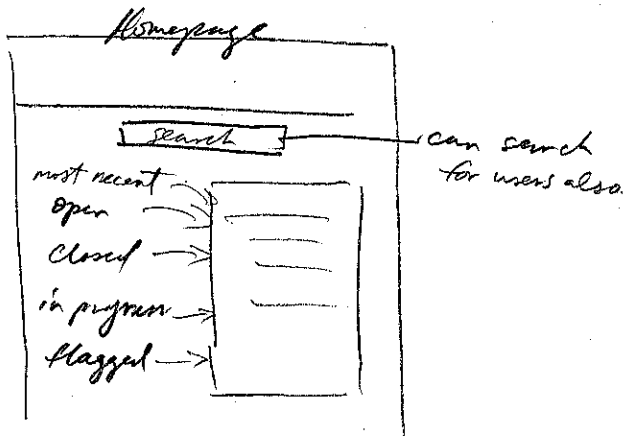 Homepage
search
can search
for users also.
most recent
open
closed
in progress
flagged